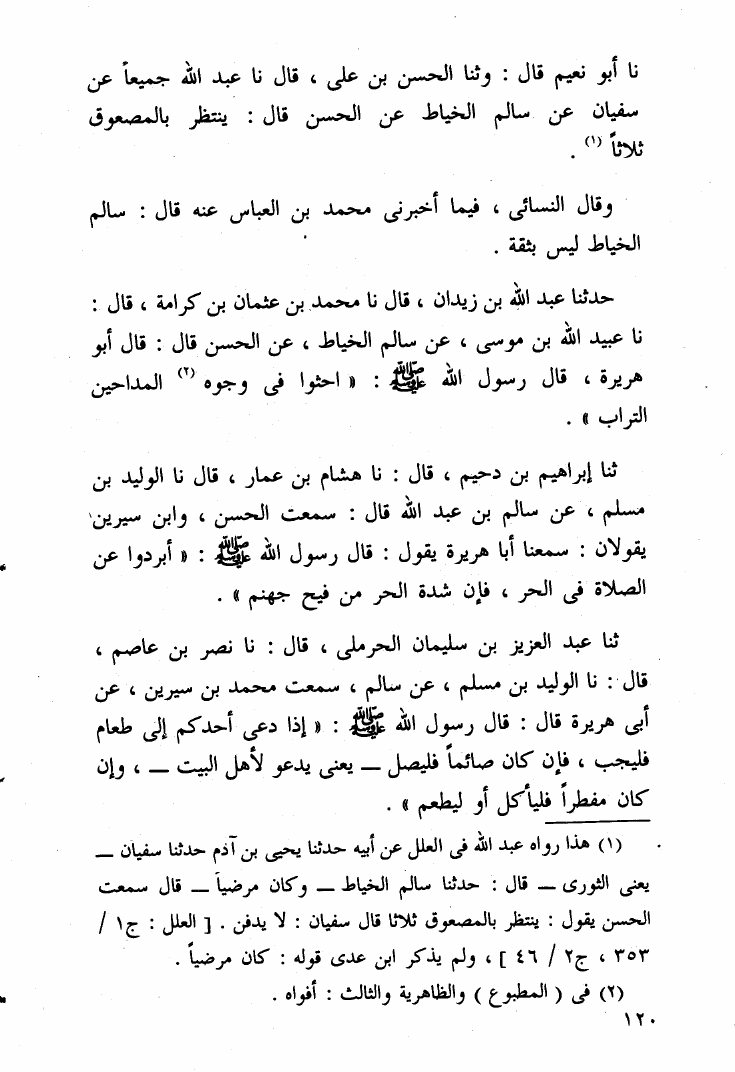 نا أبو نعيم قال : وثنا الحسن بن على ، قال نا عبد الله جميعاً عن
سفيان عن سالم الخياط عن الحسن قال : ينتظر بالمصعوق
ثلاثاً (١) .
وقال النسائى ، فيما أخبرنى محمد بن العباس عنه قال : سالم
الخياط ليس بثقة .
حدثنا عبد الله بن زيدان ، قال نا محمد بن عثمان بن كرامة ، قال :
نا عبيد الله بن موسى ، عن سالم الخياط ، عن الحسن قال : قال أبو
هريرة ، قال رسول الله ﷺ : « احثوا فى وجوه (٢) المداحين
التراب » .
ثنا إبراهيم بن دحيم ، قال : نا هشام بن عمار ، قال نا الوليد بن
مسلم ، عن سالم بن عبد الله قال : سمعت الحسن ، وابن سيرين
يقولان : سمعنا أبا هريرة يقول : قال رسول الله ﷺ : « أبردوا عن
الصلاة فى الحر ، فإن شدة الحر من فيح جهنم » .
ثنا عبد العزيز بن سليمان الحرملى ، قال : نا نصر بن عاصم ،
قال : نا الوليد بن مسلم ، عن سالم ، سمعت محمد بن سيرين ، عن
أبى هريرة قال : قال رسول الله ﷺ : « إذا دعى أحدكم إلى طعام
فليجب ، فإن كان صائماً فليصل ــ يعنى يدعو لأهل البيت ــ ، وإن
كان مفطراً فليأكل أو ليطعم » .
(١) هذا رواه عبد الله فى العلل عن أبيه حدثنا يحيى بن آدم حدثنا سفيان ــ
يعنى الثورى ــ قال : حدثنا سالم الخياط ــ وكان مرضياً ــ قال سمعت
الحسن يقول : ينتظر بالمصعوق ثلاثا قال سفيان : لا يدفن . [ العلل : ج١ /
٣٥٣ ، ج٢ / ٤٦ ] ، ولم يذكر ابن عدى قوله : كان مرضياً .
(٢) فى ( المطبوع ) والظاهرية والثالث : أفواه .
١٢٠